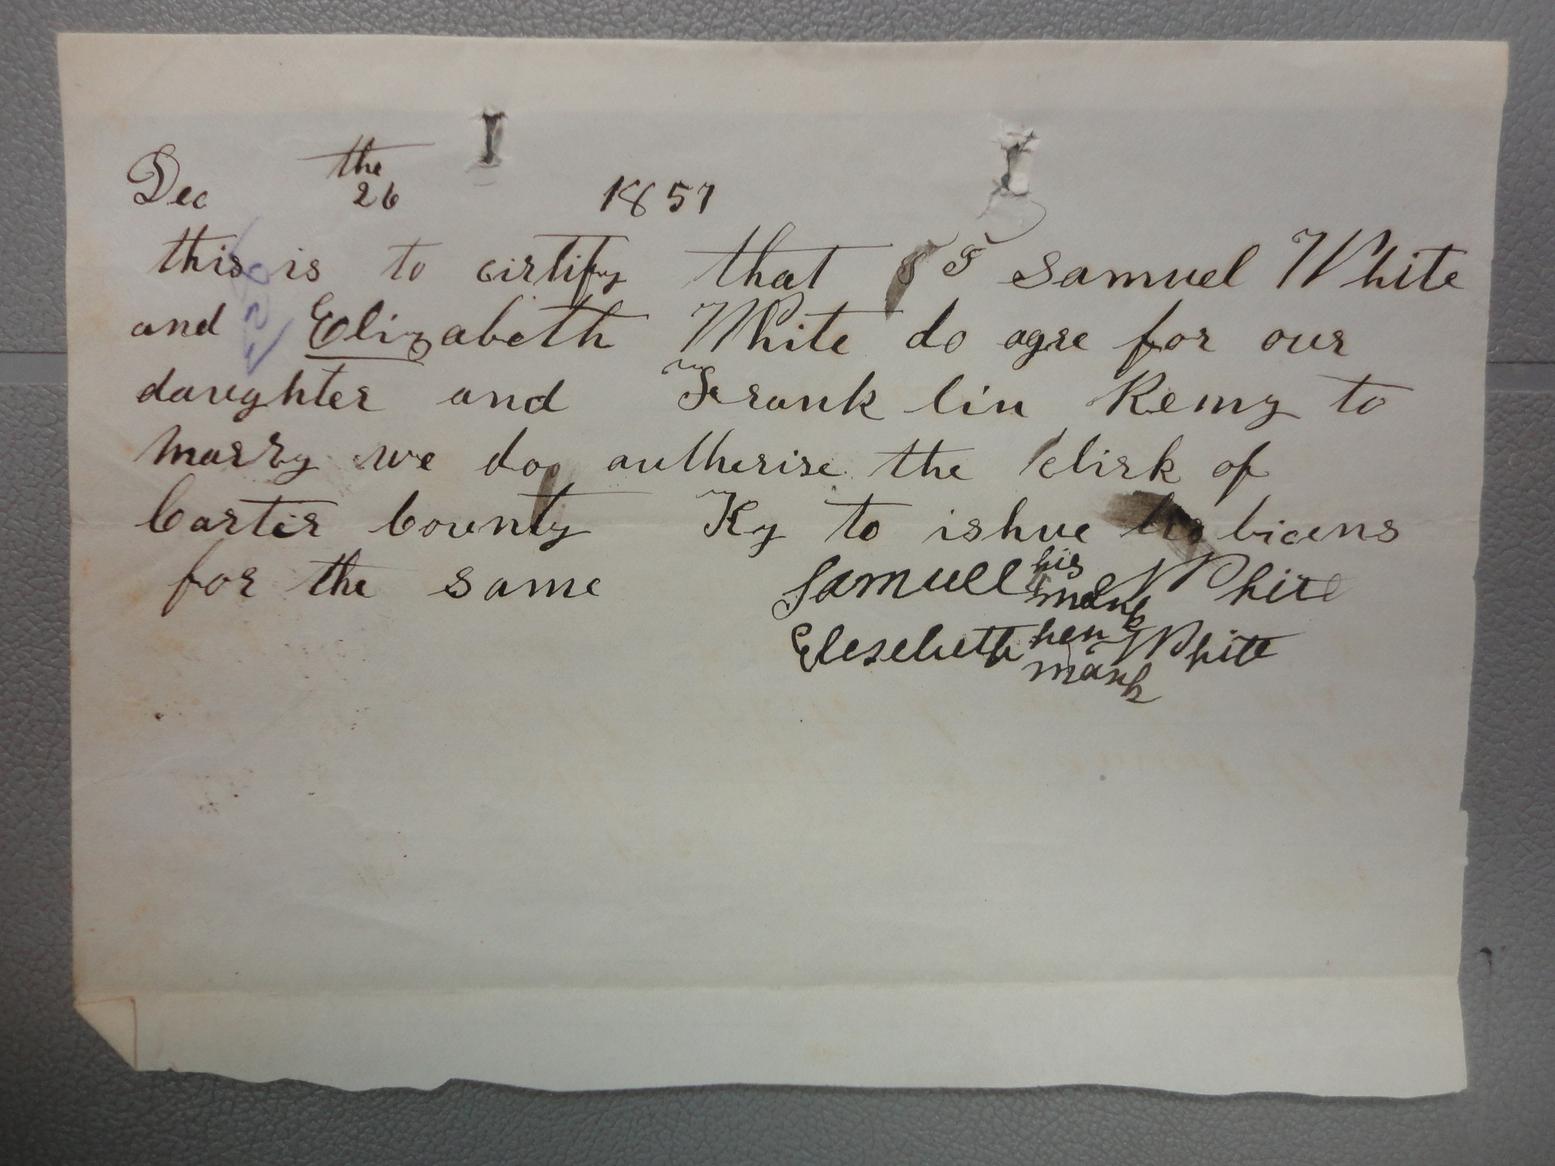 Dec the 26 1857
this is to cirtify that Samuel White
and Elizabeth White do agre for our
daughter and Frank lin Remy to
marry we do autherise the Clirk of
Carter County Ky to ishue bicens
for the same Samuell his mark White
Eleseheth her mark White